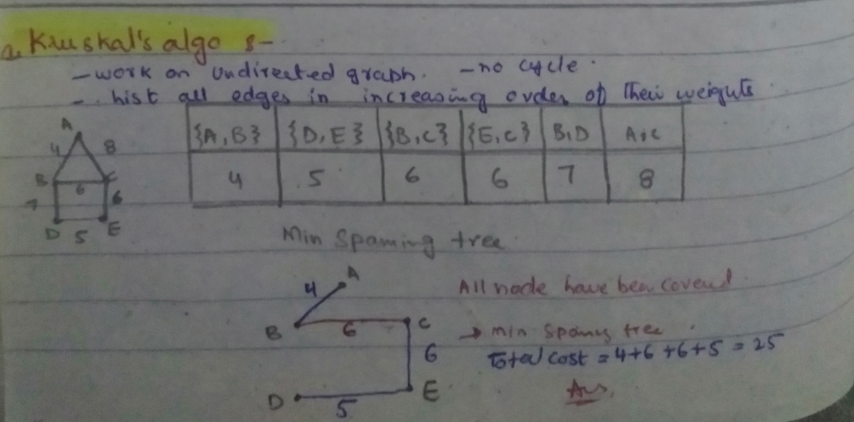 2. Kruskal's algo :-
- work on undirected graph. - no cycle.
- list all edges in increasing order of their weights.
A
4 8
B 6 C
7 6
D 5 E
{A,B} {D,E} {B,C} {E,C} B,D A,C
4 5 6 6 7 8
Min Spaming tree
A
4
B 6 C
6
D 5 E
All node have been coverd.
→ min Spaning tree.
Total cost = 4+6+6+5 = 25
Ans.